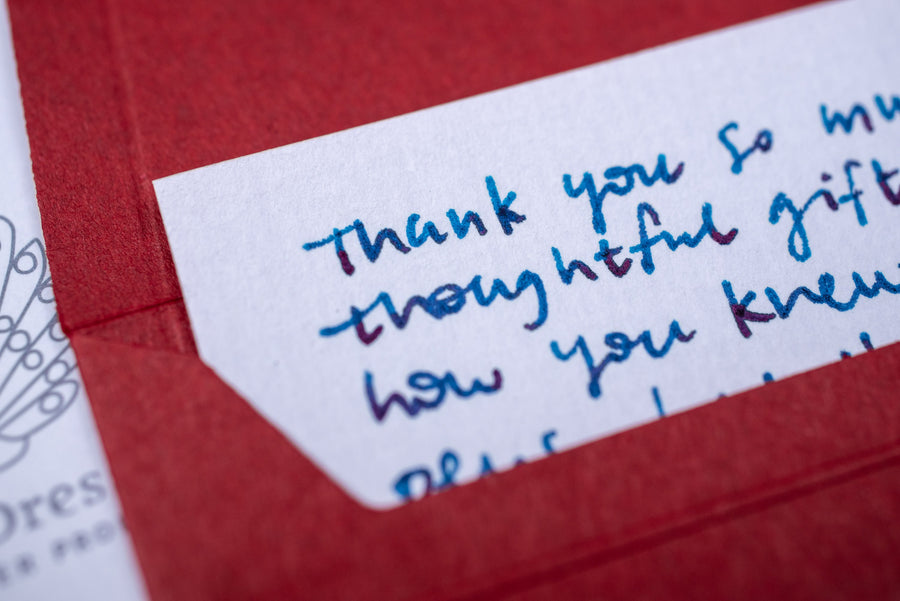 Thank you so mu
thoughtful gift
how you knew
Dres
ER PRO